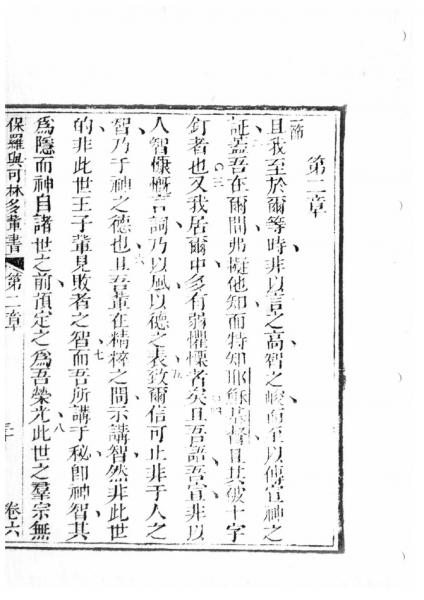 第二章
一節 且我至於爾等時非以言之高智之峻而至以傳宣神之
証蓋吾在爾間弗擬他知而特知耶穌基督且其被十字
釘者也又我居爾中多有弱懼慄者矣且吾語吾宣非以
人智慷慨言詞乃以風以德之表致爾信可止非于人之
智乃于神之德也且吾輩在精粹之間示講智然非此世
的非此世王子輩見敗者之智而吾所講于秘即神智其
為隱而神自諸世之前預定之為吾榮光此世之羣宗無
保羅與可林多輩書 第二章 卷六